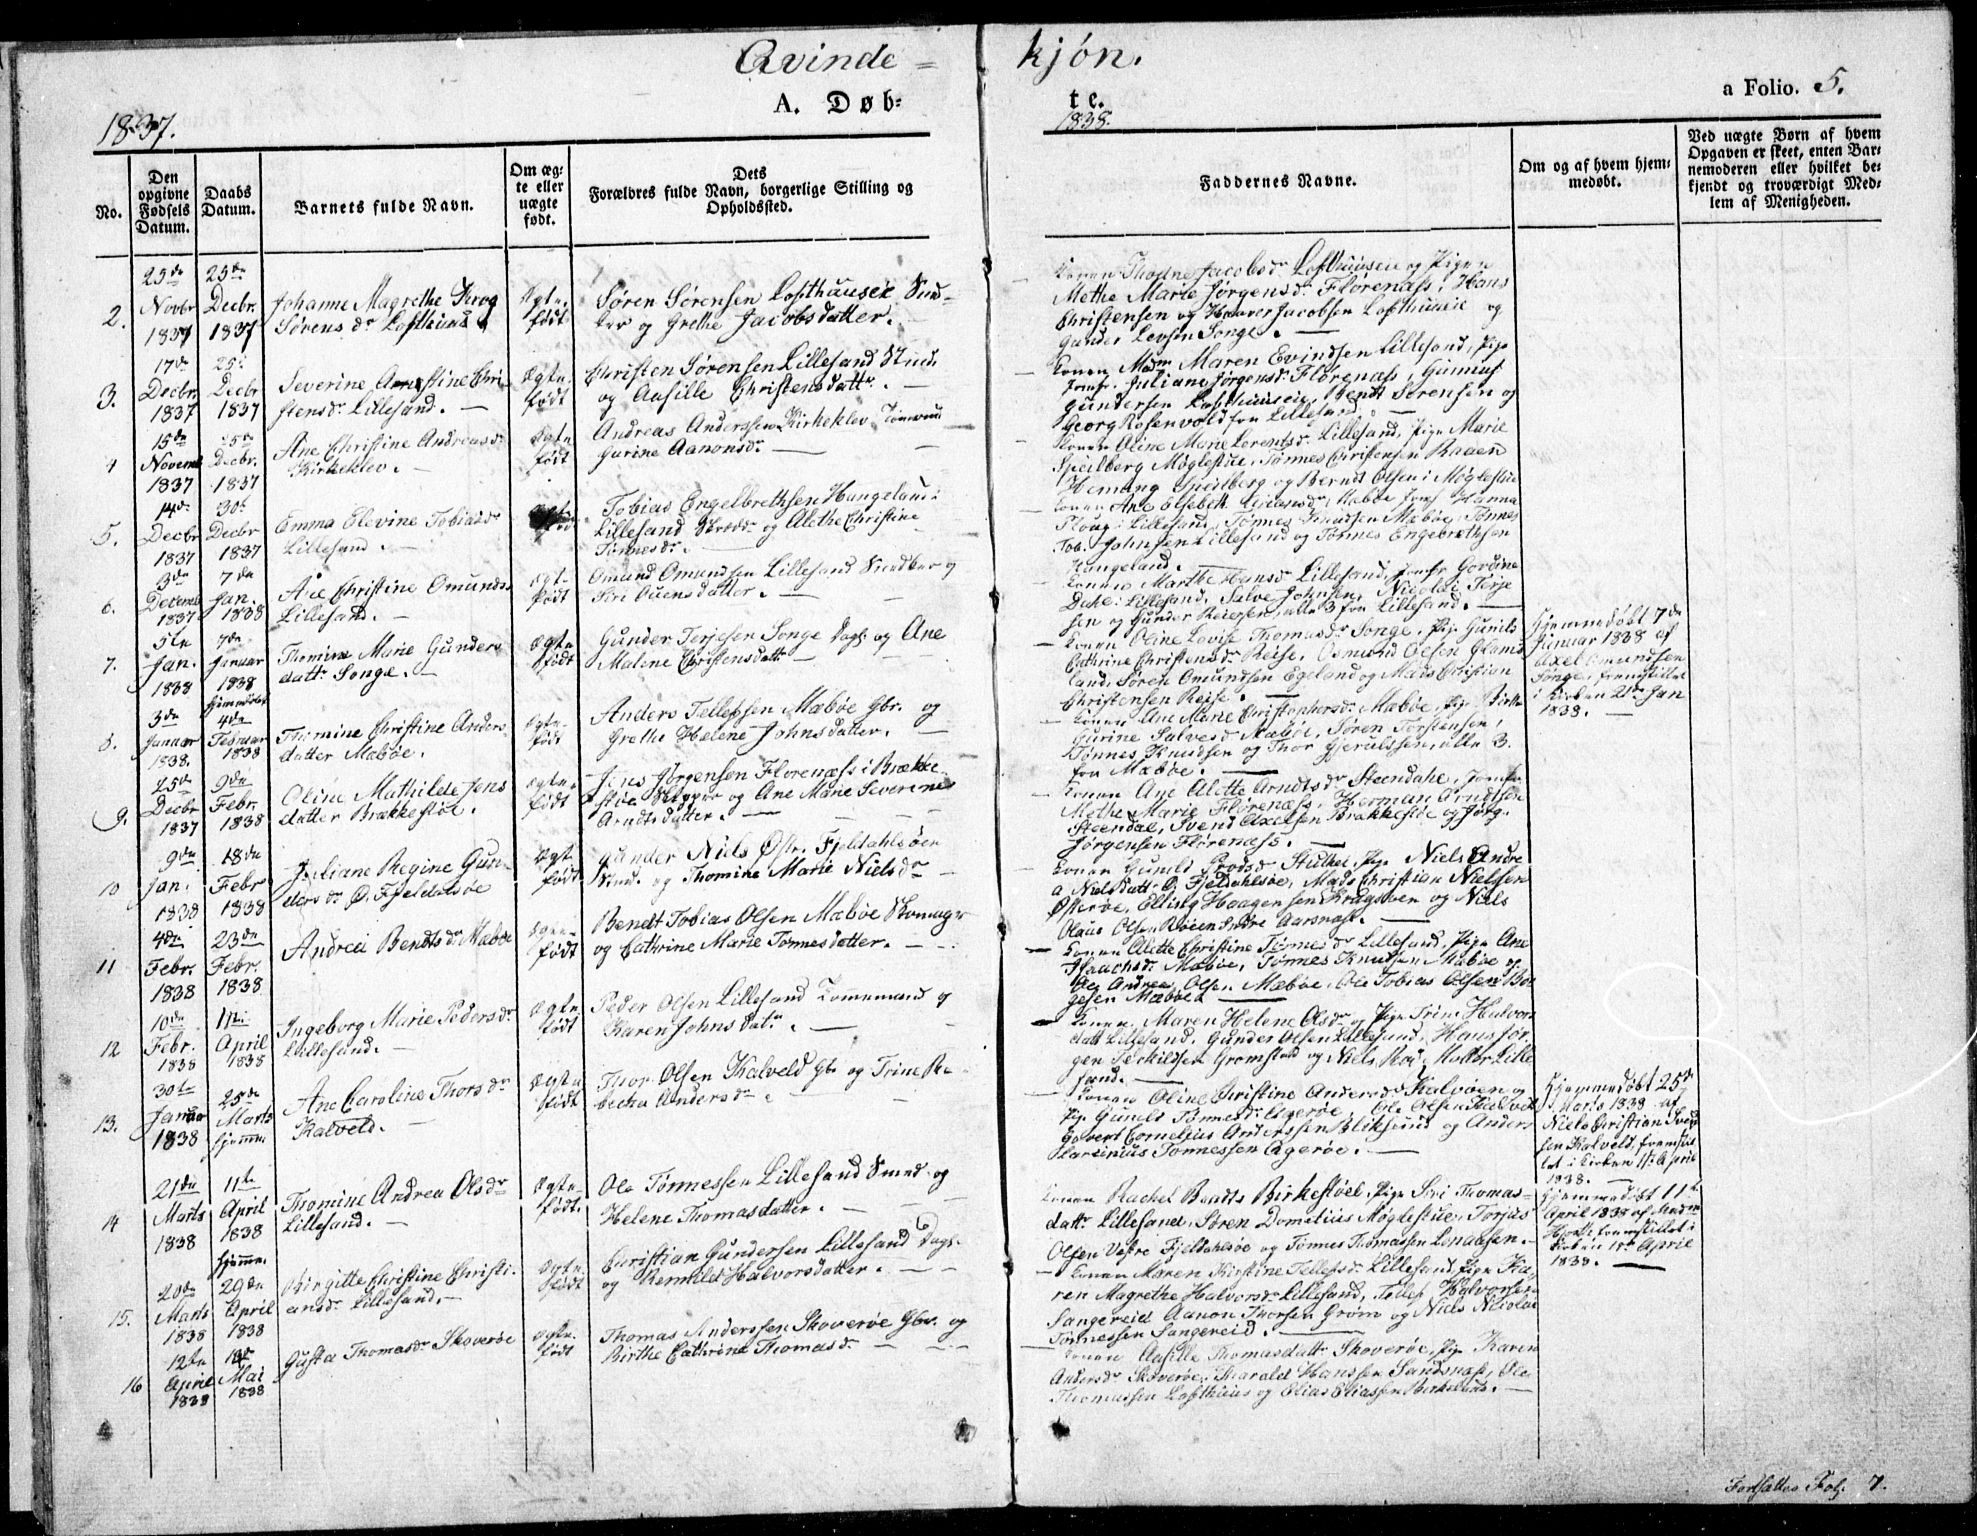 Qvinde =
kjön.
A. Døb=
te.
a Folio. 5.
1837.
1838.
No.
Den opgivne Fødsels Datum.
Daabs Datum.
Barnets fulde Navn.
Om ægte eller uægte født.
Dets Forældres fulde Navn, borgerlige Stilling og Opholdssted.
Faddernes Navne.
Om og af hvem hjemmedøbt.
Ved uægte Børn af hvem Opgaven er skeet, enten Barnemoderen eller hvilket bekjendt og troværdigt Medlem af Menigheden.
2.
25de Novbr 1837
25de Decbr. 1837
Johanne Magrethe Krog
Sörens dr Lofthuus
Ægte født
Søren Sørensen Lofthuuseie
og Grethe Jacobsdatter.
Konen Jacobsdr Lofthuuseie og Pigen
Methe Marie Jørgensdr Florenæss, Hans
Christensen og Jacobsen Lofthuuseie og
Gunder Songe.
3.
17de Decbr. 1837
25. Decbr 1837
Severine Chri-
stensdr Lillesand.
Ægte født
Christen Sørensen Lillesand
og Aasille Christensdattr.
Konen Madm Maren Evindsen Lillesand, Pige
Jomfr. Juliane Jørgensdr Florenæss,
Gundersen Lofthuuseie, Sørensen og
Georg Rosenvold fra Lillesand
4
15de Novemb 1837
25de Decbr. 1837
Ane Christine Andreasdr
Kirkeklev.
Ægte født
Andreas Anderssen Kirkeklev
Gurine Aanonsdr
Konen Oline Marie Lorentsdr Lillesand, Pige Marie
Speilberg Møglestue, Tønnes Christensen
Speilberg og Berndt Olsen i Møglestue
5.
14de Decbr 1837
30te Decbr 1837
Emma Elevine Tobiasdr
Lillesand.
Tobias Engelbrethsen Hangeland i
Lillesand og Alethe Christine
Tønnesdr.
Konen Ane Elsebeth Mæbøe Jomf Hanna
Lillesand, Tønnes Knudsen Mæbøe, Tønnes
Tob. Johnsen Lillesand og Tønnes Engebrethsen
Hangeland.
6.
3de Decemb 1837
7de Jan. 1838
Ane Christine Omundsdr
Lillesand.
Ægte født
Omund Omundsen Lillesand og
Siri datter.
Konen Marthe Hansdr Lillesand, Jomfr
Lillesand, Salve Johnsen, Nicolai Terje
sen og Gunder Reiersen, alle 3 fra Lillesand.
7.
5te Jan. 1838
7de Januar 1838 hjemmedøbt
Thomine Marie Gunders
datt. Songe.
Ægte født
Gunder Terjesen Songe Dags. og Ane
Maline Christensdattr
Konen Oline Lovise Thomasdr Songe, Pige Gunild
Cathrine Christensdr Reise, Osmund Olsen
land, Søren Omundsen Egeland og Mads Christian
Christensen Reise.
Hjemmedøbt 7de
Januar 1838 af
Axel Omundsen
Songe, fremstillet
i Kirken 21de Jan
1838.
8.
3de Januar 1838.
4de Februar 1838
Thomine Christine Anders
datter Mæbøe.
Ægte født
Anders Tellefsen Mæbøe Gbr. og
Grethe Helene Johnsdatter.
Konen Ane Marie Christophersdr Mæbøe, Pige
Gurine Salvesdr Mæbøe, Søren Torstensen,
Tønnes Knudsen og Thor alle 3
fra Mæbøe.
9.
25de Decbr 1837
9de Febr. 1838
Oline Mathilde Jens
datter Brækkestøe.
Ægte født
Jens Jørgensen Florenæss i Brække
støe Skipper og Ane Marie Severine
Arndtsdatter.
Konen Ane Alette Arndtsdr Steendahl, Jomfr
Methe Marie Florenæss, Herman Arndtsen
Steendal, Svend Axelsen Brækkestøe og Jørg.
Jørgensen Florenæss.
10
9de Jan. 1838
18de Febr 1838
Juliane Regine Gun-
dersdr Ø. Fjeldalsøe
Ægte født
Gunder Niels Østr. Fjeldahlsøen
og Thomine Marie Nielsdr
Konen Gunild Pige Niels Andre
a Nielsdattr Ø. Fjeldahlsøe, Mads Christian Nielsen
Østerøe, Elling Haagensen og Niels
Olaus Olsen Indre Aarsnæs.
11
4de Febr. 1838
23de Febr. 1838
Andrea Bendtsdr Mæbøe
Ægte født
Bendt Tobias Olsen Mæbøe Skomager
og Cathrine Marie Tønnesdatter.
Konen Alette Christine Tønnesdr Lillesand, Pige Ane
Isaachsdr Mæbøe, Tønnes Knutsen Mæbøe og
Ole Andreas Olsen Mæbøe, Ole Tobias Olsen
Mæbøe
12
10de Febr. 1838
11te April 1838
Ingeborg Marie Pedersdr
Lillesand.
Ægte født
Peder Olsen Lillesand Tømmermand og
Karen Johns Datr.
Konen Maren Helene Olsdr, Pige Trine Halvors
datt Lillesand, Gunder Olsen Lillesand, Hans Jør
gen Gromstad og Niels Lille
sand.
13.
30te Januar 1838
25de Marts hjemme
Ane Caroline Thorsdr
Kalveld.
Ægte født
Thor Olsen Kalveld Gbr og Trine Re-
becha Andersdr
Konen Oline Christine Andersdr Kalvøen og
Pige Gunild Tønnesdr Agerøe, Ole Olsen Kalveld
Govert Cornelius Anderssen og Anders
Tønnessen Agerøe.
Hjemmedøbt 25de
Marts 1838 af
Niels Christian
sen Kalveld, fremstil
let i Kirken 11te April
1838.
14
21de Marts 1838
11te April 1838 hjemme
Thomine Andrea Olsdr
Lillesand.
Ægte født.
Ole Tønnessen Lillesand og
Helene Thomasdatter.
Konen Rachel Bendts Birkestøel, Pige Siri Thomas-
dattr Lillesand, Søren Domelius Møglestue, Torjus
Olsen Vestre Fjeldahlsøe og Tønnes Thomassen
Hjemmedøbt 11te
April 1838 af Madm
fremstillet i
Kirken April
1838.
15.
20de Marts 1838
29de April 1838
Birgitte Christine Christi-
ansdr Lillesand.
Ægte født
Christian Gundersen Lillesand Dags.
og Halvorsdatter.
Konen Maren Kirstine Tellefsdr Lillesand, Pige Ka-
ren Magrethe Halvorsdr Lillesand, Tellef Halvorsen
Sangereid Aanon Thorsen Grøm og Niels Nicolai
Tønnessen Sangereid.
16
12te April 1838
Mai 1838
Gusta Thomasdr Skoverøe
Ægte født
Thomas Anderssen Skoverøe Gbr. og
Birthe Cathrine Thomasdr
Konen Aasille Thomasdatt. Skoverøe, Pige Karen
Andersdr Skoverøe, Harald Hanssen Sandsnæs, Ole
Thomassen Lofthuus og Elias Eliassen Birkeland.
Fortsættes Fol. 7.